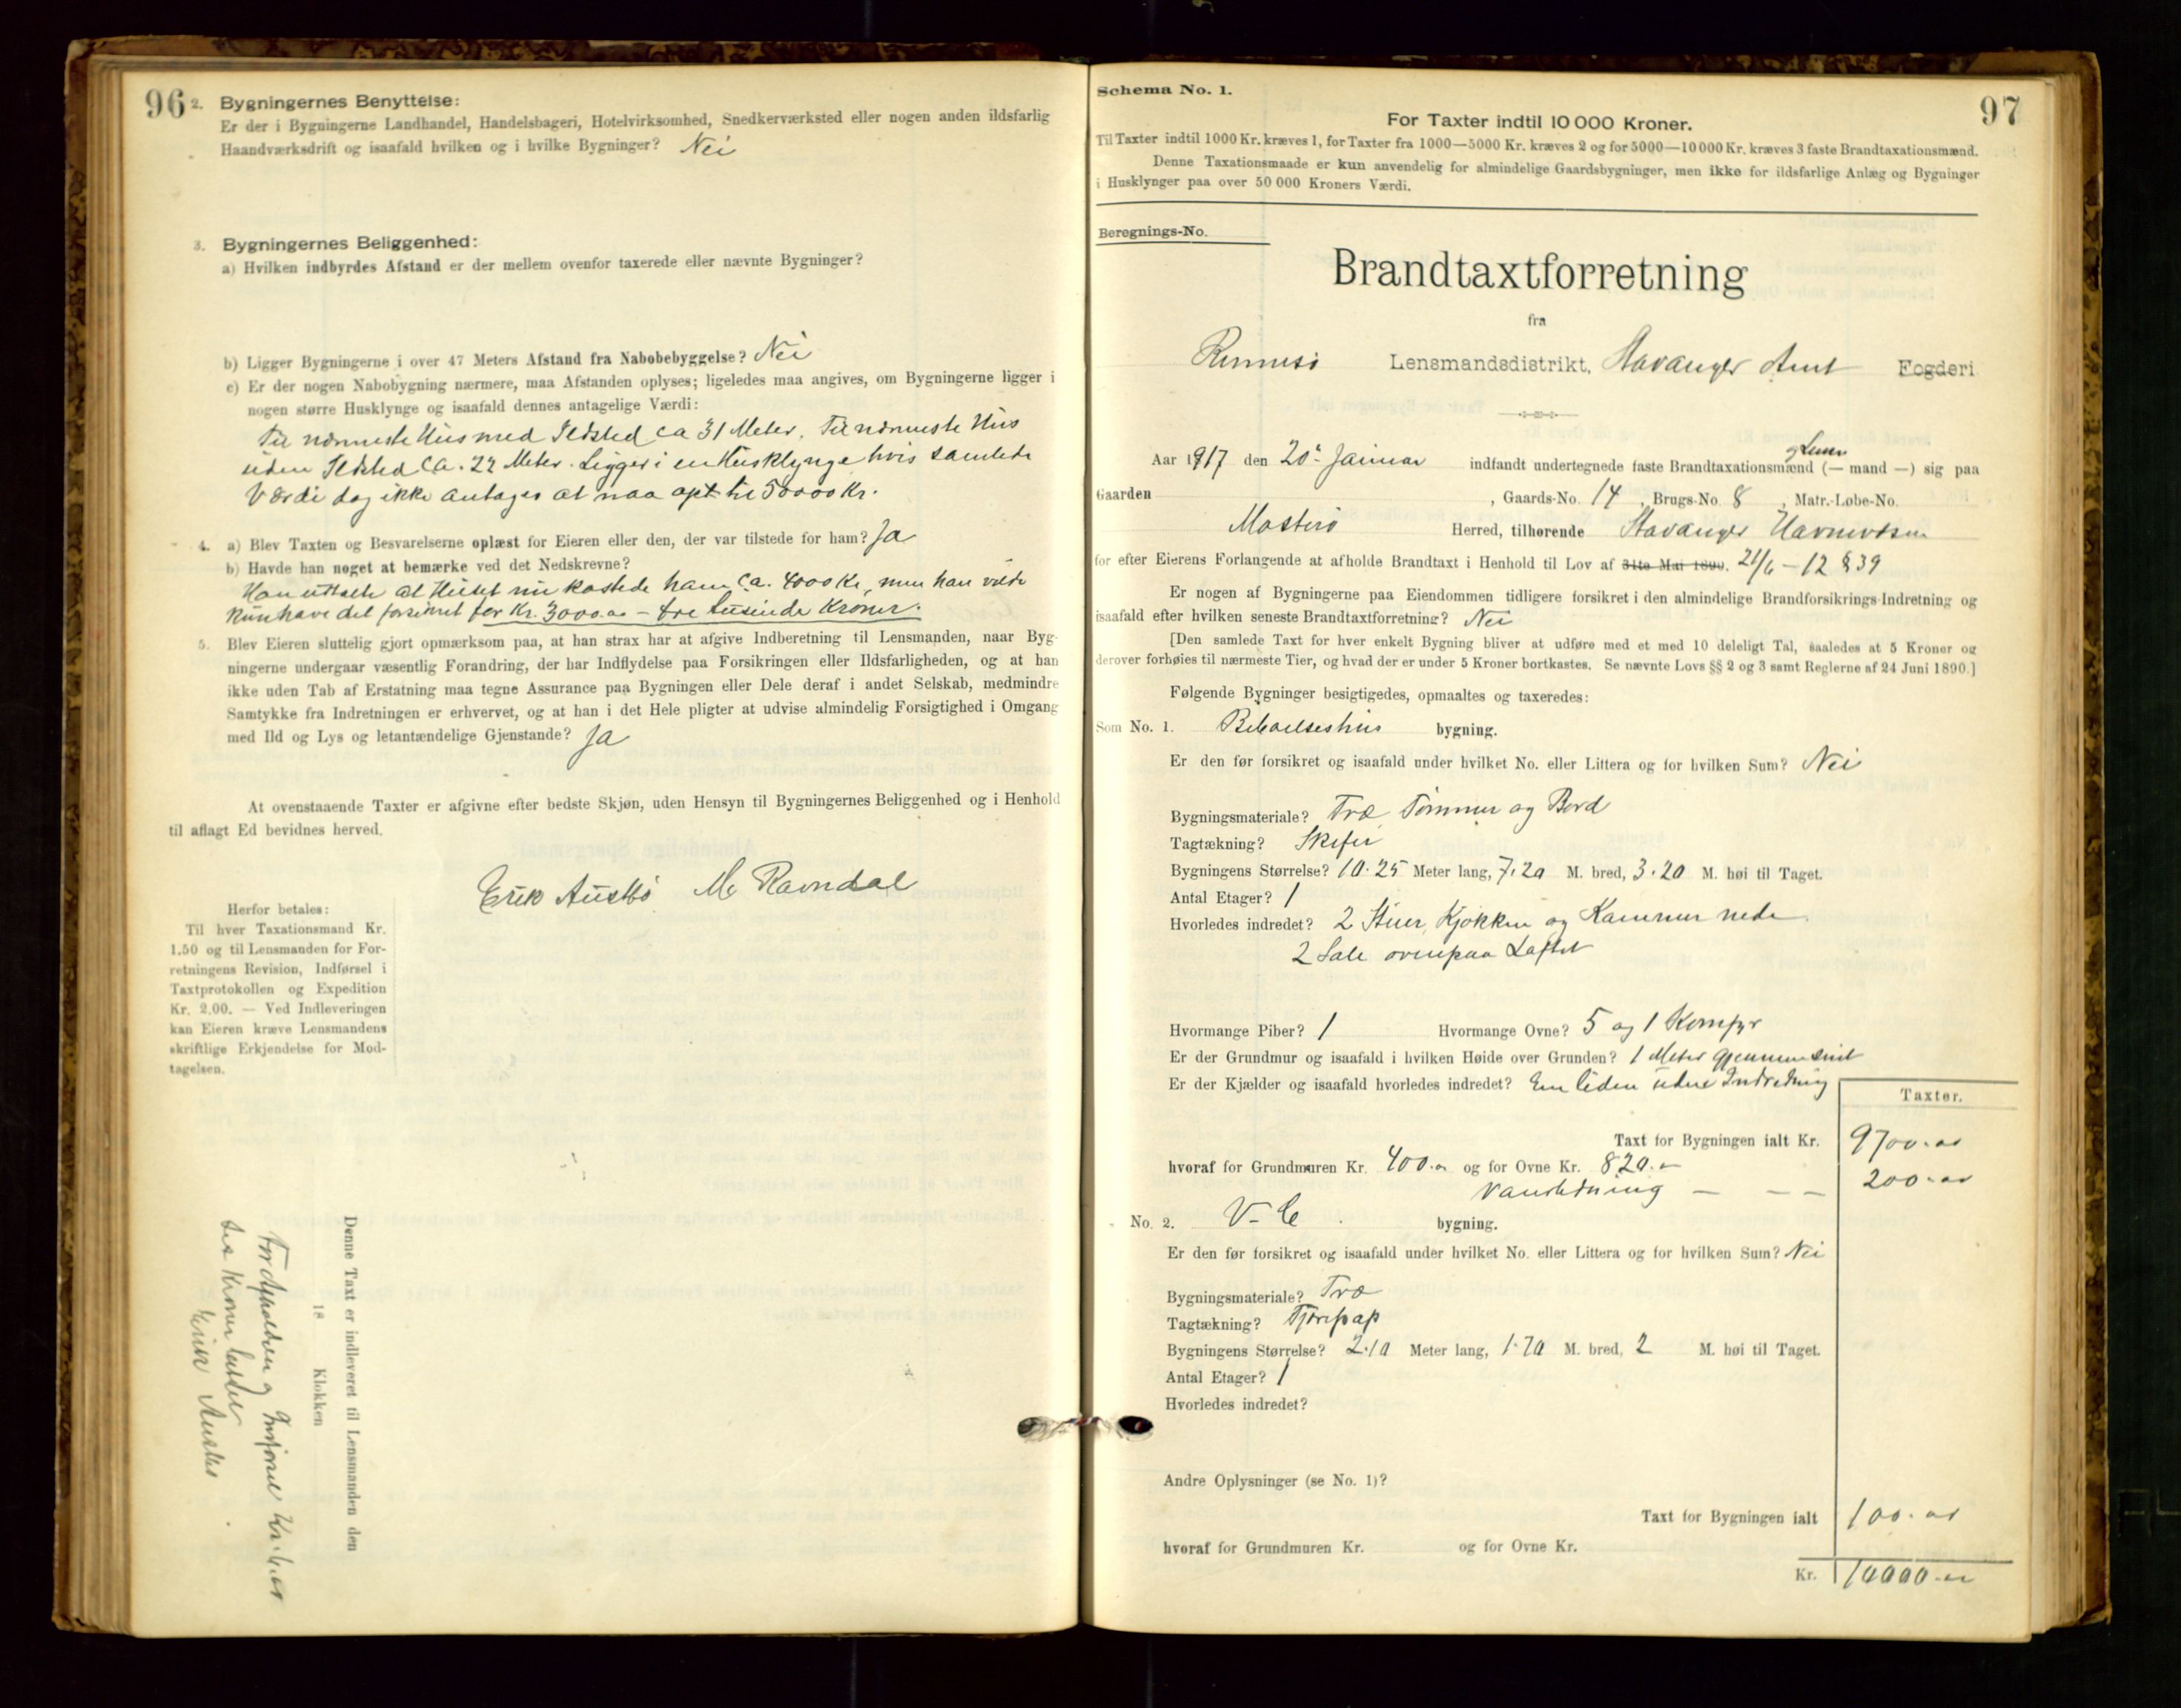 96
2. Bygningernes Benyttelse:
Er der i Bygningerne Landhandel, Handelsbageri, Hotelvirksomhed, Snedkerværksted eller nogen anden ildsfarlig
Haandværksdrift og isaafald hvilken og i hvilke Bygninger? Nei
3. Bygningernes Beliggenhed:
a) Hvilken indbyrdes Afstand er der mellem ovenfor taxerede eller nævnte Bygninger?
b) Ligger Bygningerne i over 47 Meters Afstand fra Nabobebyggelse? Nei
c) Er der nogen Nabobygning nærmere, maa Afstanden oplyses; ligeledes maa angives, om Bygningerne ligger i
nogen større Husklynge og isaafald dennes antagelige Værdi:
Til nærmeste Hus med Ildsted ca 31 Meter. Til nærmeste Hus
uden Ildsted ca. 22 Meter. Ligger i en Husklynge hvis samlede
Værdi dog ikke antages at naa op til 50000 Kr.
4. a) Blev Taxten og Besvarelserne oplæst for Eieren eller den, der var tilstede for ham? Ja
b) Havde han noget at bemærke ved det Nedskrevne?
Han uttalte at Huset nu kostede ham ca. 4000 Kr, men han vilde
kun have det forsikret for Kr. 3000.00 – tre tusinde Kroner.
5. Blev Eieren sluttelig gjort opmærksom paa, at han strax har at afgive Indberetning til Lensmanden, naar Byg-
ningerne undergaar væsentlig Forandring, der har Indflydelse paa Forsikringen eller Ildsfarligheden, og at han
ikke uden Tab af Erstatning maa tegne Assurance paa Bygningen eller Dele deraf i andet Selskab, medmindre
Samtykke fra Indretningen er erhvervet, og at han i det Hele pligter at udvise almindelig Forsigtighed i Omgang
med Ild og Lys og letantændelige Gjenstande? Ja
At ovenstaaende Taxter er afgivne efter bedste Skjøn, uden Hensyn til Bygningernes Beliggenhed og i Henhold
til aflagt Ed bevidnes herved.
Erik Austbø M. Ravndal
Herfor betales:
Til hver Taxationsmand Kr.
1.50 og til Lensmanden for For-
retningens Revision, Indførsel i
Taxtprotokollen og Expedition
Kr. 2.00. — Ved Indleveringen
kan Eieren kræve Lensmandens
skriftlige Erkjendelse for Mod-
tagelsen.
Denne Taxt er indleveret til Lensmanden den
18 Klokken
For Afholdelsen og Indførsel Kr.
Kroner betalt
Erik Austbø
97
Schema No. 1.
For Taxter indtil 10 000 Kroner.
Til Taxter indtil 1000 Kr. kræves 1, for Taxter fra 1000—5000 Kr. kræves 2 og for 5000—10 000 Kr. kræves 3 faste Brandtaxationsmænd.
Denne Taxationsmaade er kun anvendelig for almindelige Gaardsbygninger, men ikke for ildsfarlige Anlæg og Bygninger
i Husklynger paa over 50 000 Kroners Værdi.
Beregnings-No.
Brandtaxtforretning
fra
Rennesø Lensmandsdistrikt, Stavanger Amt Fogderi
Aar 1917 den 20de Januar indfandt undertegnede faste Brandtaxationsmænd (— mand —) sig paa
Gaarden , Gaards-No. 14 , Brugs-No. 8 , Matr.-Løbe-No.
Mosterø Herred, tilhørende Stavanger Havnevæsen
for efter Eierens Forlangende at afholde Brandtaxt i Henhold til Lov af 31te Mai 1899. 21/6 – 12 § 39
Er nogen af Bygningerne paa Eiendommen tidligere forsikret i den almindelige Brandforsikrings-Indretning og
isaafald efter hvilken seneste Brandtaxtforretning? Nei
[Den samlede Taxt for hver enkelt Bygning bliver at udføre med et med 10 deleligt Tal, saaledes at 5 Kroner og
derover forhøies til nærmeste Tier, og hvad der er under 5 Kroner bortkastes. Se nævnte Lovs §§ 2 og 3 samt Reglerne af 24 Juni 1890.]
Følgende Bygninger besigtigedes, opmaaltes og taxeredes:
Som No. 1. Beboelseshus bygning.
Er den før forsikret og isaafald under hvilket No. eller Littera og for hvilken Sum? Nei
Bygningsmateriale? Træ Tømmer og Bord
Tagtækning? Skifer
Bygningens Størrelse? 10.25 Meter lang, 7.20 M. bred, 3.20 M. høi til Taget.
Antal Etager? 1
Hvorledes indredet? 2 Stuer, Kjøkken og Kammer nede
2 Sale ovenpaa Loftet
Hvormange Piber? 1 Hvormange Ovne? 5 og 1 Komfyr
Er der Grundmur og isaafald i hvilken Høide over Grunden? 1 Meter gjennemsnit
Er der Kjælder og isaafald hvorledes indredet? En liden uden Indredning
Taxter.
Taxt for Bygningen ialt Kr. 9700.00
hvoraf for Grundmuren Kr. 400.00 og for Ovne Kr. 820.–
Vandledning – – – 200.00
No. 2. V-C bygning.
Er den før forsikret og isaafald under hvilket No. eller Littera og for hvilken Sum? Nei
Bygningsmateriale? Træ
Tagtækning? Tjærepap
Bygningens Størrelse? 2.10 Meter lang, 1.70 M. bred, 2 M. høi til Taget.
Antal Etager? 1
Hvorledes indredet?
Andre Oplysninger (se No. 1)?
Taxt for Bygningen ialt 100.00
hvoraf for Grundmuren Kr. og for Ovne Kr.
Kr. 10000.00